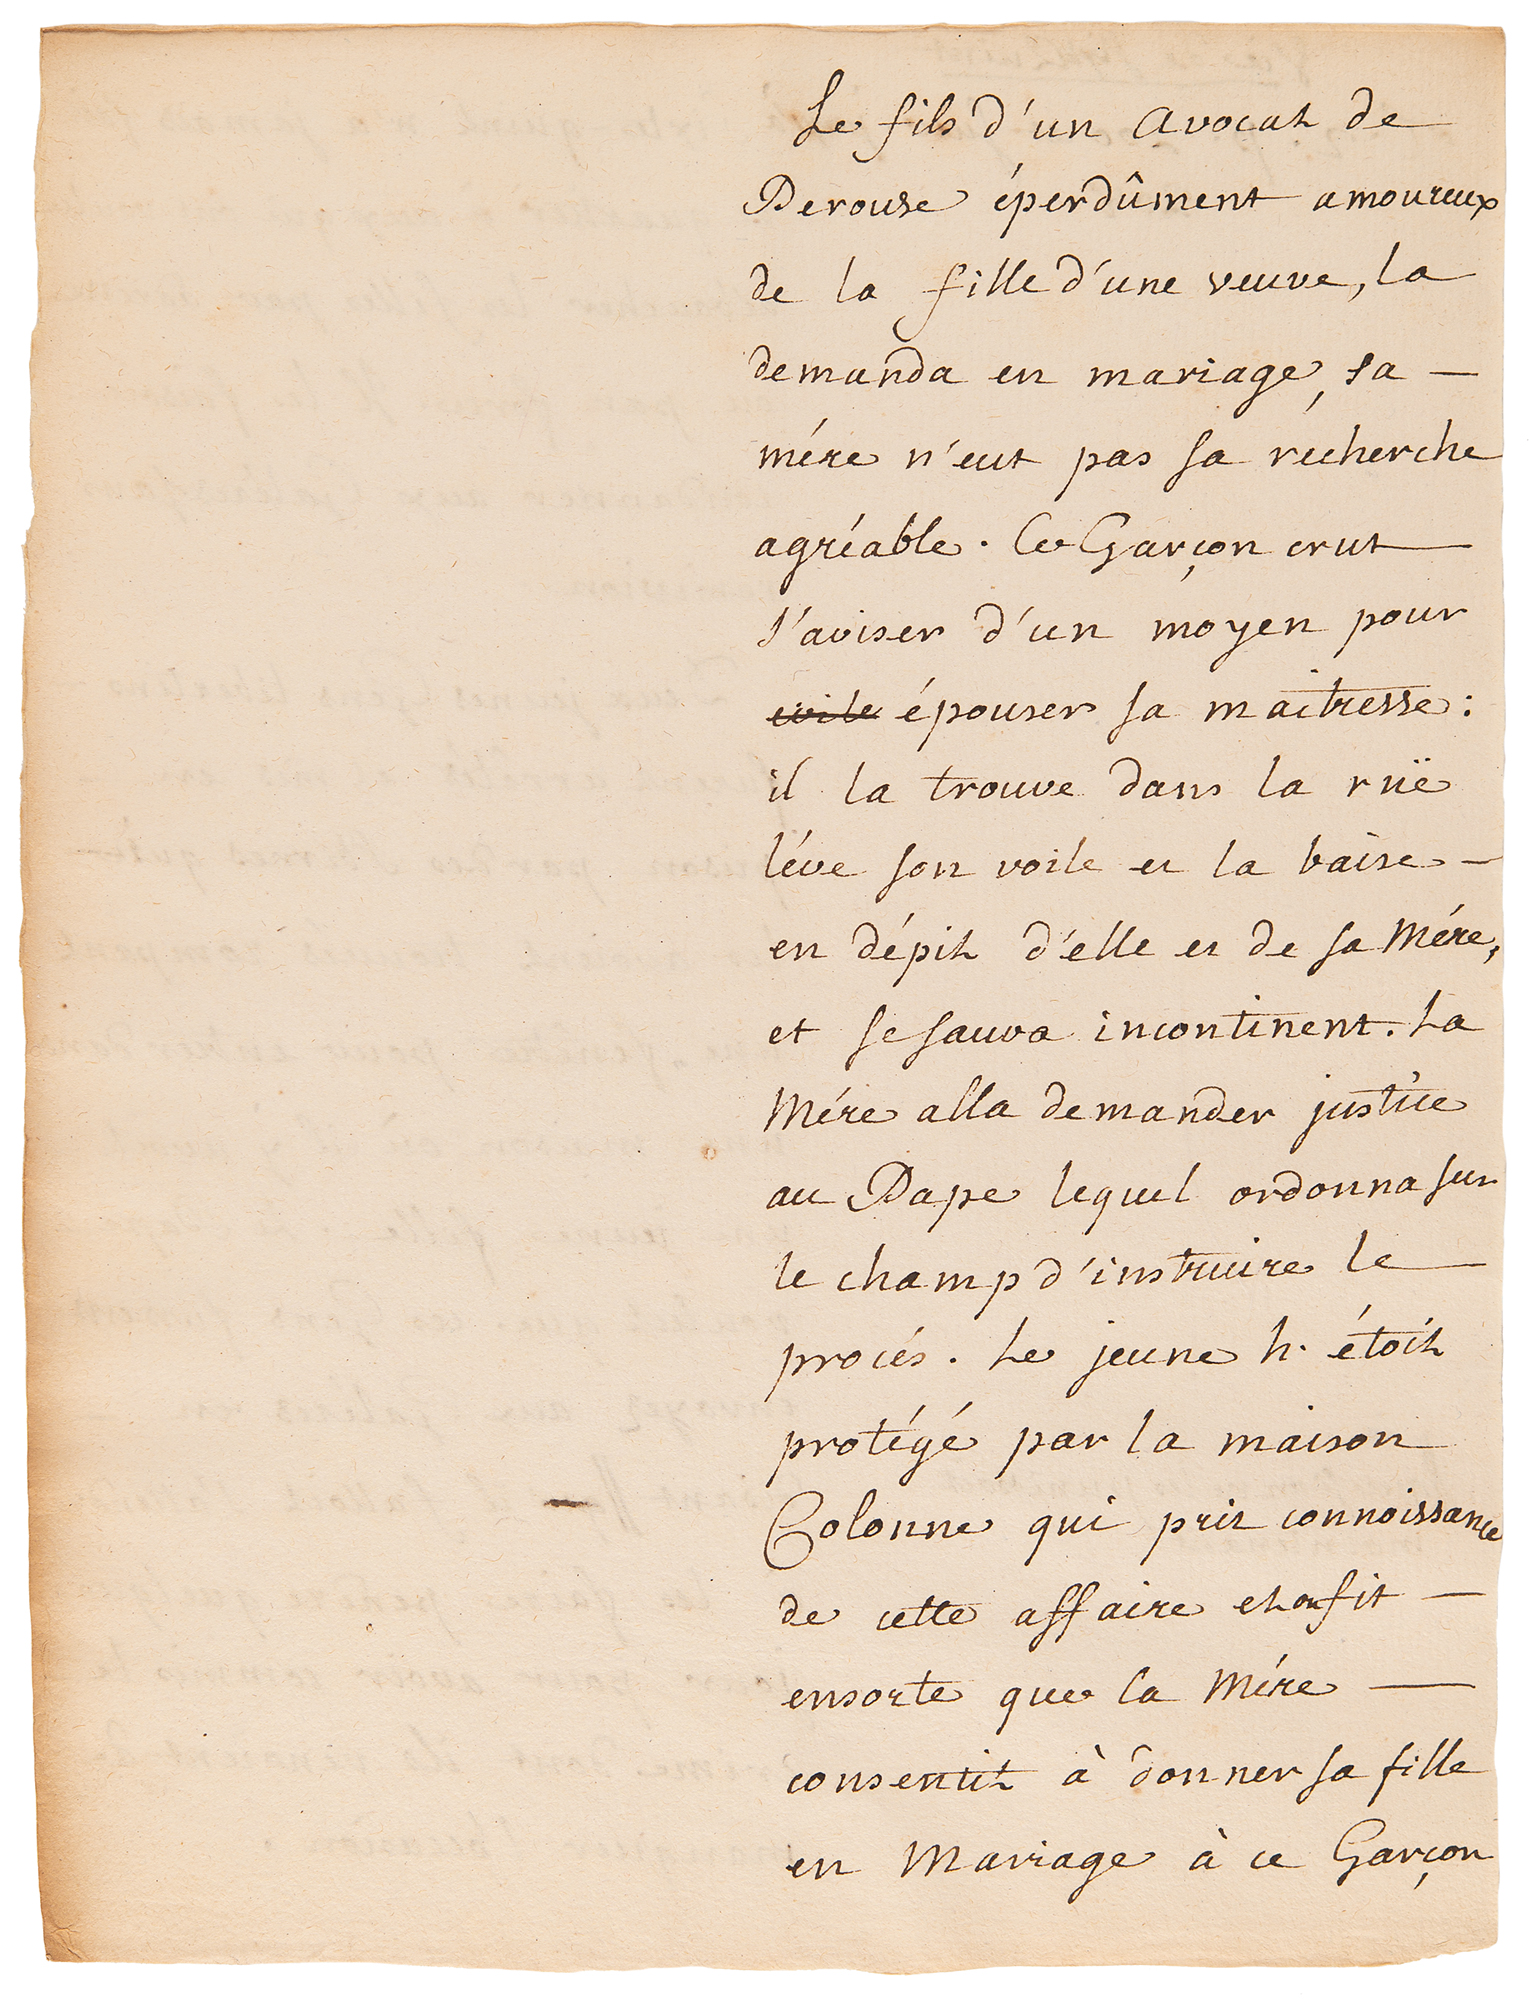 Le fils d'un avocat de
Perouse éperdûment amoureux
de la fille d'une veuve, la
demanda en mariage, sa —
mére n'eut pas sa recherche
agréable. Ce Garçon crut
s'aviser d'un moyen pour
épouser sa maitresse:
il la trouve dans la ruë
léve son voile et la baise —
en dépit d'elle et de sa Mére,
et se sauva incontinent. La
Mére alla demander justice
au Pape lequel ordonna sur
le champ d'instruire le —
procés. Le jeune h. étoit
protégé par la maison
Colonne qui prit connoissance
de cette affaire et on fit —
ensorte que la Mére —
consentit à donner sa fille
en Mariage à ce Garçon